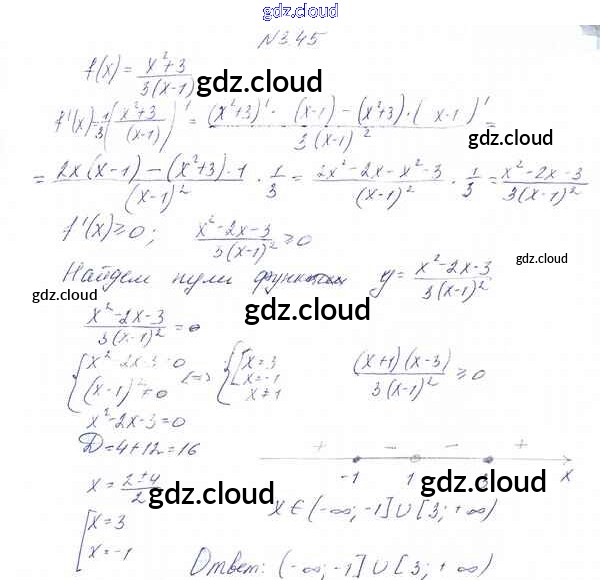 gdz.cloud
№3.45
f(x) = (x²+3)/(3(x-1))
gdz.cloud
f'(x) = 1/3 ((x²+3)/(x-1))' = ((x²+3)' · (x-1) - (x²+3) · (x-1)')/(3(x-1)²) =
gdz.cloud
= (2x(x-1) - (x²+3)·1)/(x-1)² · 1/3 = (2x²-2x-x²-3)/(x-1)² · 1/3 = (x²-2x-3)/(3(x-1)²)
f'(x) ≥ 0; (x²-2x-3)/(3(x-1)²) ≥ 0
gdz.cloud
Найдем нули функции y = (x²-2x-3)/(3(x-1)²)
gdz.cloud
gdz.cloud
(x²-2x-3)/(3(x-1)²) = 0
{x²-2x-3=0 <=> {[x=3 (x+1)(x-3)/(3(x-1)²) ≥ 0
{(x-1)²≠0 [x=-1
x≠1
x²-2x-3=0
D=4+12=16
+ - - +
-1 1 3 x
x = (2±4)/2
gdz.cloud
gdz.cloud
x∈(-∞; -1]∪[3; +∞)
[x=3
[x=-1
Ответ: (-∞; -1]∪[3; +∞)
gdz.cloud